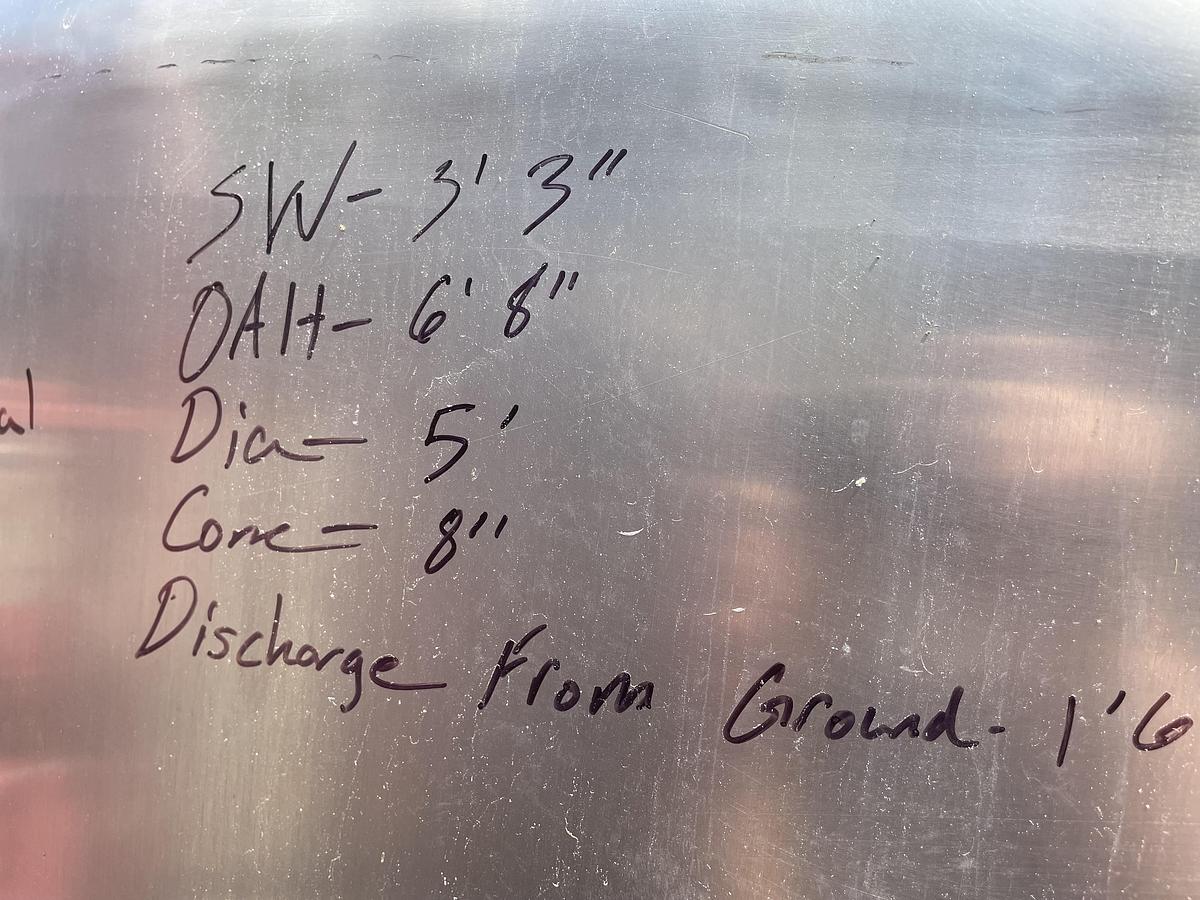 SW- 3' 3"
OAH- 6' 8"
al
Dia- 5'
Cone- 8"
Discharge From Ground- 1'6